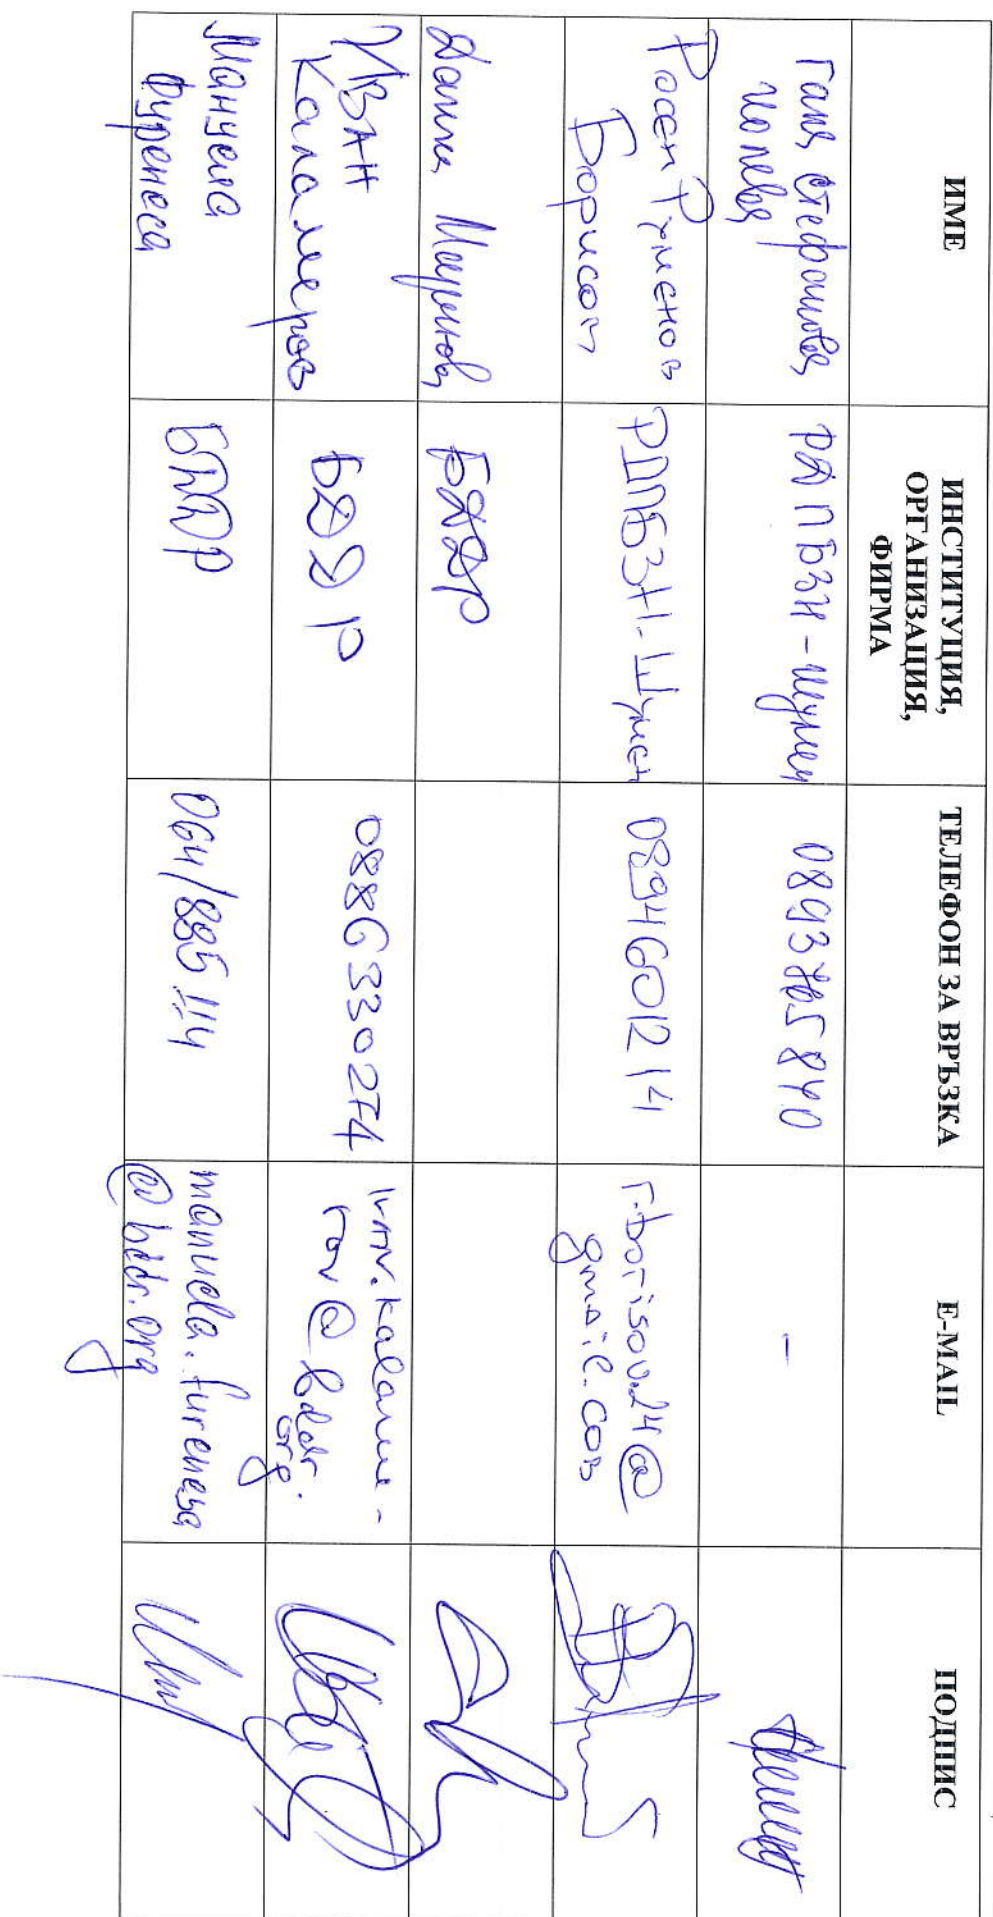 ИМЕ
ИНСТИТУЦИЯ,
ОРГАНИЗАЦИЯ,
ФИРМА
ТЕЛЕФОН ЗА ВРЪЗКА
E-MAIL
ПОДПИС
Галя Стефанова
Цолева
РДПБЗН - Шумен
0893765840
-
Росен Руменов
Борисов
РДПБЗН - Шумен
0894601214
r.borisov.24@
gmail.com
Маринова
БДДР
ИВАН
Каламеров
БДДР
0886330274
ivan.kalame-
rov@bddr.
org
Мануела
Фуренеса
БДДР
064/885 114
manuela.furenesa
@bddr.org